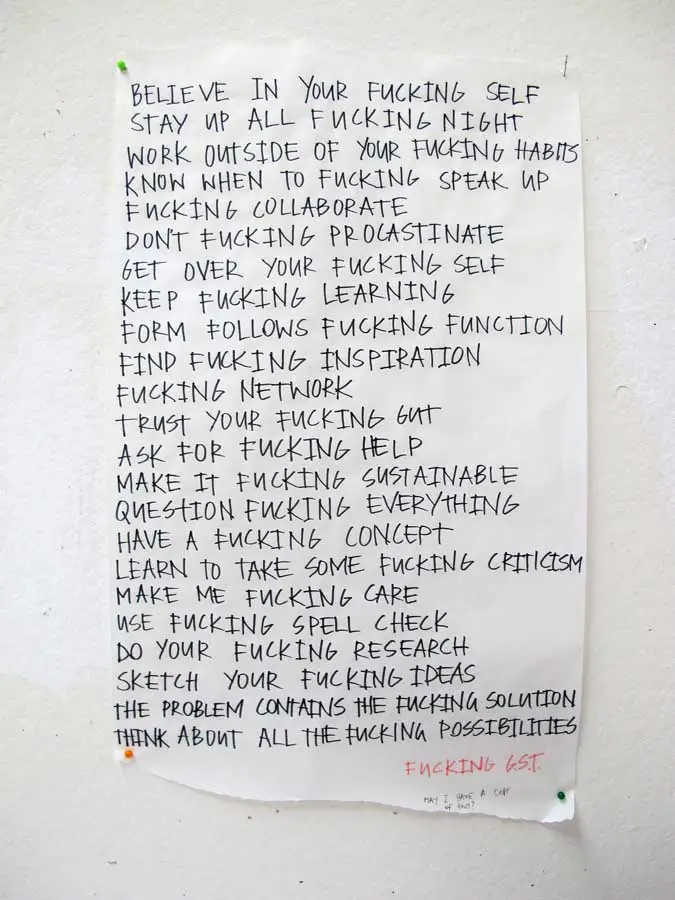 BELIEVE IN YOUR FUCKING SELF
STAY UP ALL FUCKING NIGHT
WORK OUTSIDE OF YOUR FUCKING HABITS
KNOW WHEN TO FUCKING SPEAK UP
FUCKING COLLABORATE
DON'T FUCKING PROCASTINATE
GET OVER YOUR FUCKING SELF
KEEP FUCKING LEARNING
FORM FOLLOWS FUCKING FUNCTION
FIND FUCKING INSPIRATION
FUCKING NETWORK
TRUST YOUR FUCKING GUT
ASK FOR FUCKING HELP
MAKE IT FUCKING SUSTAINABLE
QUESTION FUCKING EVERYTHING
HAVE A FUCKING CONCEPT
LEARN TO TAKE SOME FUCKING CRITICISM
MAKE ME FUCKING CARE
USE FUCKING SPELL CHECK
DO YOUR FUCKING RESEARCH
SKETCH YOUR FUCKING IDEAS
THE PROBLEM CONTAINS THE FUCKING SOLUTION
THINK ABOUT ALL THE FUCKING POSSIBILITIES
FUCKING G.S.T.
MAY I HAVE A COPY
OF